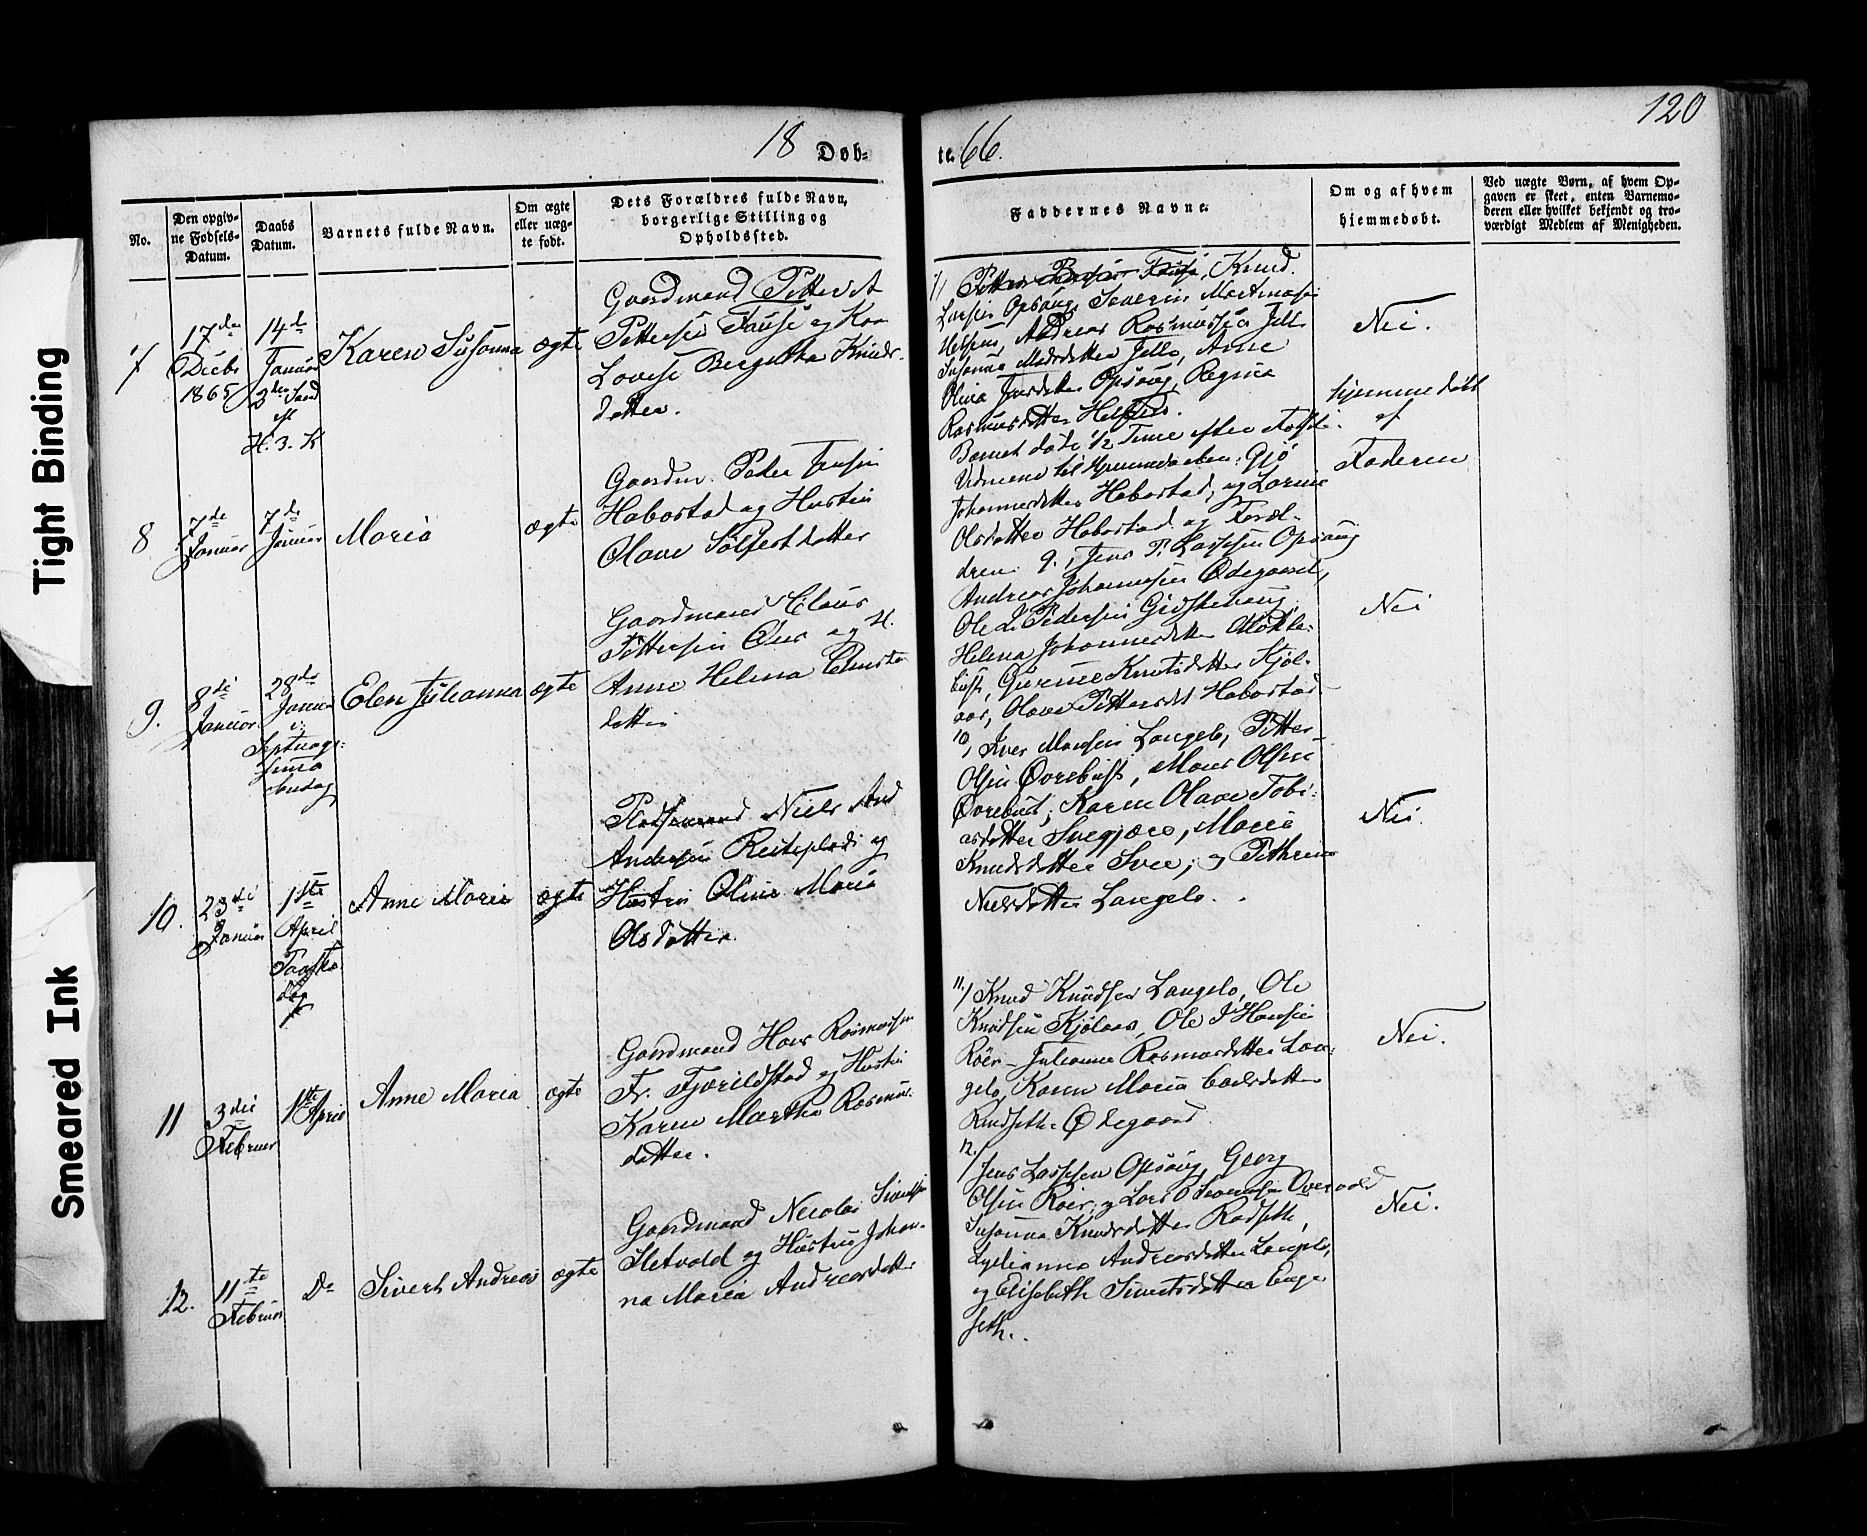 120
18 Døb-
te. 66.
No.
Den opgiv-
ne Fødsels-
Datum.
Daabs
Datum.
Barnets fulde Navn.
Om ægte
eller uæg-
te født.
Dets Forældres fulde Navn,
borgerlige Stilling og
Opholdssted.
Faddernes Navne.
Om og af hvem
hjemmedøbt.
Ved uægte Børn, af hvem Op-
gaven er skeet, enten Barnemo-
deren eller hvilket bekjendt og tro-
værdigt Medlem af Menigheden.
7
17de
Decbr
1865
14de
Januar
2den Sønd
ef
H. 3. K
Karen Susanna
ægte
Gaardmand Petter A
Pettersen Fause og Kon
Lovise Bergitha Knuds-
datter.
7/ Knud
Larsen Opsaug, Severin Martinusen
Andreas Rasmussen Jelle
Susanna Madsdatter Jelle, Anne
Olina Jensdatter Opsaug, Regina
Rasmusdatter
Nei.
8
7de
Januar
7de
Januar
Maria
ægte
Gaardm. Peder Jensen
Habostad og Hustru
Olave Sølfestdatter
Barnet døde 1/2 Time efter Fødsle.
Vidnerne til Hjemmedaaben: Gjø
Johannesdatter Habostad, og Lorine
Olsdatter Habostad og Foræl-
drene.
Hjemmedøbt
af
Faderen
9.
8de
Januar
28de
Januar
:
Septuage-
sima
Søndag
Elen Julianna
ægte
Gaardmand Claus
Pettersen Aus og H.
Anne Helena
datter
9., Jens P. Larssen Opsaug
Andreas Johannesen Ødegaard,
Ole L. Pedersen Gidskehaug,
Helena Johannesdatter Mokle-
bust, Gurine Knutsdatter Kjøl-
aas, Olave Pettersdt Habostad
Nei
10.
23de
Januar
1ste
April
Paaske
dag
Anne Maria
ægte
Pladsmand Niels And
Andersen Reiteplads og
Hustru Oline Maria
Olsdatter.
10, Iver Monsen Langelo, Petter
Olsen Øvrebust, Mons Olsen
Øvrebust, Karen Olave Tobi-
asdatter Svegjære, Maria
Knudsdatter Svee, og Pethrine
Nielsdatter Langelo.
Nei.
11
3die
Februar
1ste April
Anne Maria
ægte
Gaardmand Hans Rasmussen
Fr. Fjærildstad og Hustru
Karen Martha Rasmus-
datter.
11./ Knud Knudsen Langelo, Ole
Knudsen Kjølaas, Ole J Hansen
Røer – Julianne Rasmusdatter Lan-
gelo, Karen Maria Carlsdatter
Rødseth Ødegaard
Nei.
12.
11te
Februar
Do
Sivert Andreas
ægte
Gaardmand Necolai Sivertsen
Sletvold og Hustru Johan-
na Maria Andreasdatter
12./ Jens Larssen Opsaug, Georg
Olsen Røer, og Lars O Overvold
Susanna Knudsdatter Rødseth,
Andreasdatter Langelo,
og Elisabeth Sivertsdatter Enge-
seth.
Nei.
Tight Binding
Smeared Ink